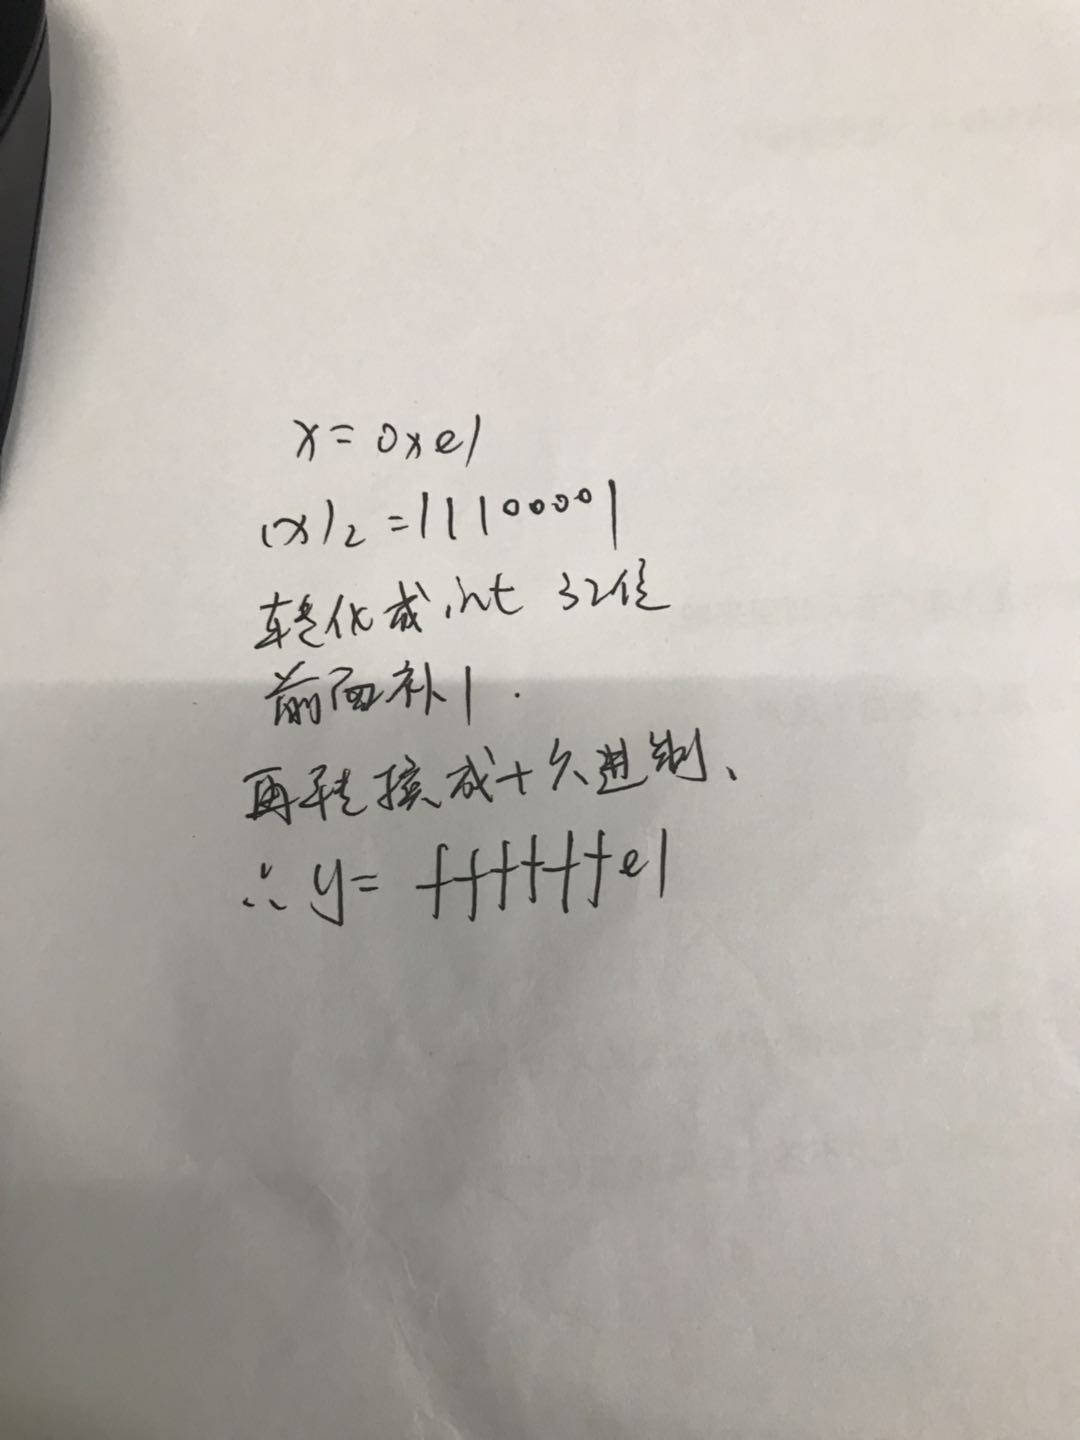 x = 0xe1
(x)₂ = 11100001
转化成int 32位
前面补1.
再转换成十六进制、
∴ y = ffffffe1